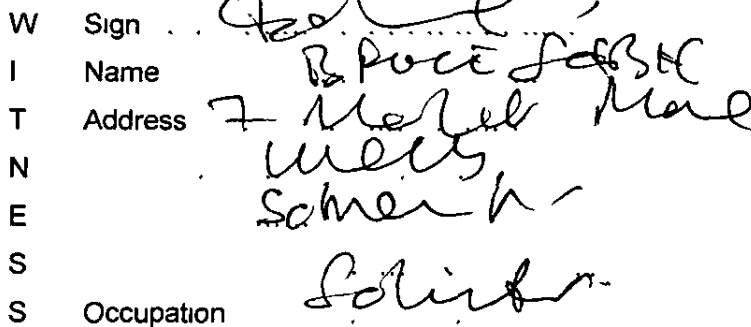 W Sign
I Name BRUCE
T Address 7 Market Place
N Wells
E Somerset
S
S Occupation Solicitor